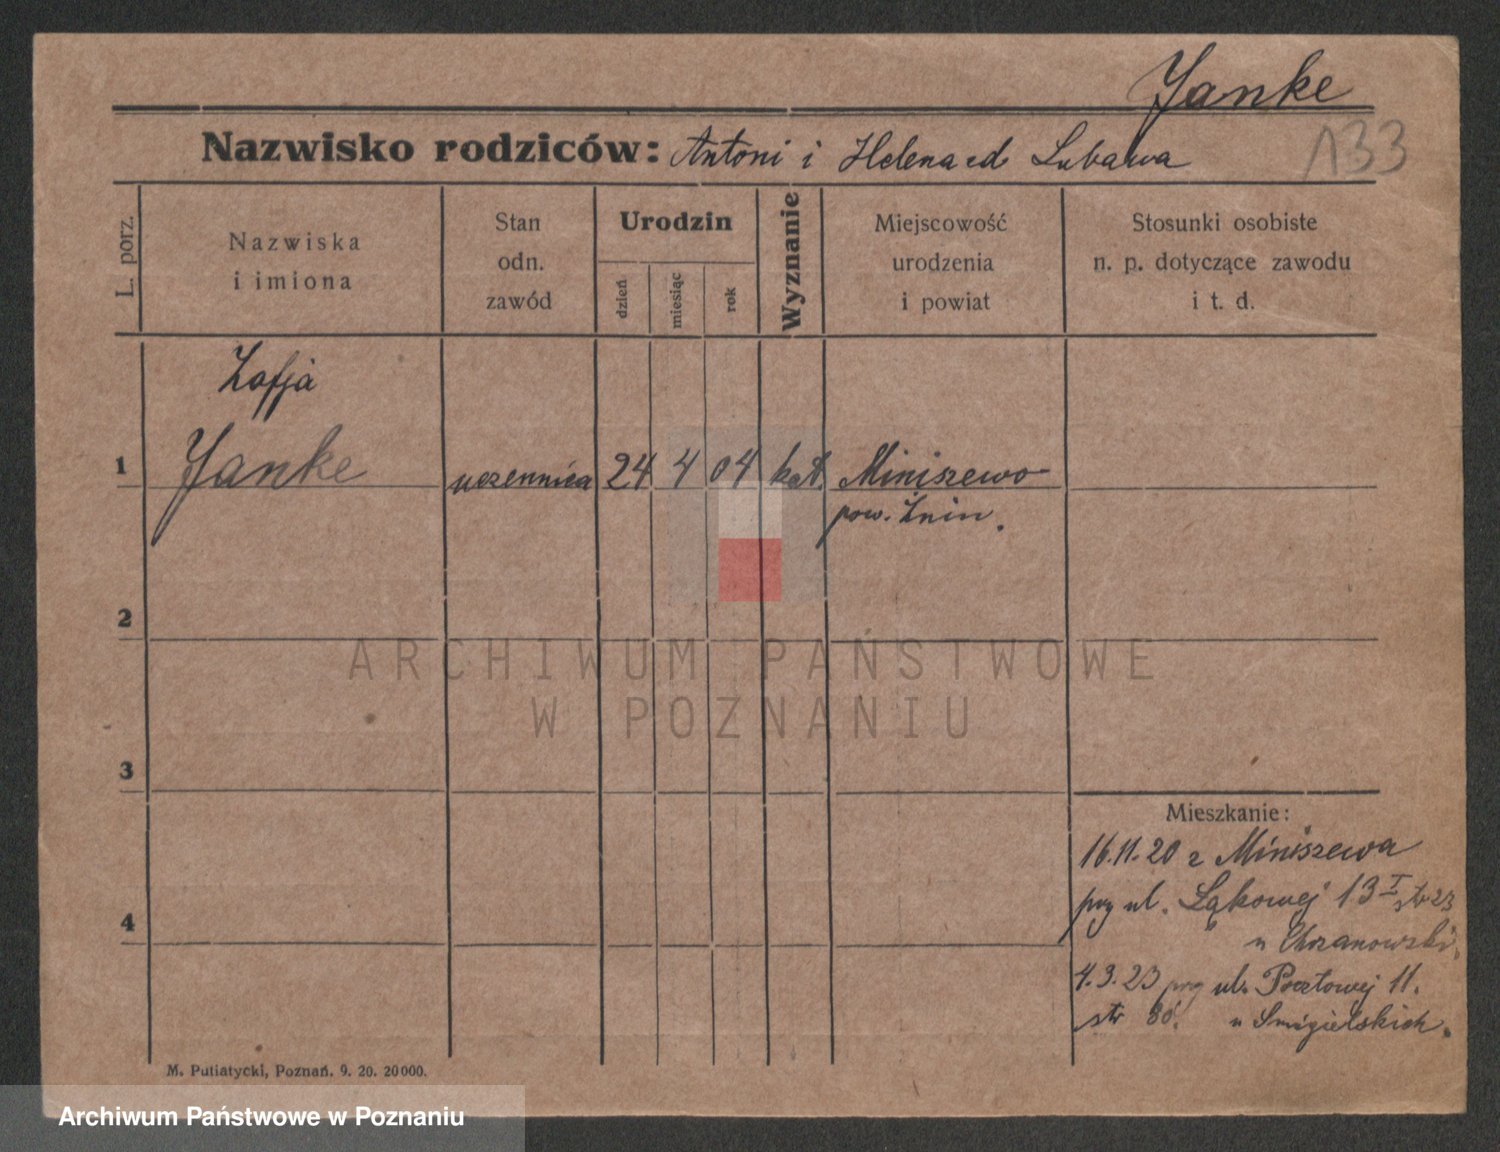 Janke
Nazwisko rodziców: Antoni i Helena Lubawa
133
L. porz.
Nazwiska
i imiona
Stan
odn.
zawód
Urodzin
dzień
miesiąc
rok
Wyznanie
Miejscowość
urodzenia
i powiat
Stosunki osobiste
n. p. dotyczące zawodu
i t. d.
Zofja
1 Janke uczennica 24 4 04 kat. Miniszewo
pow. Żnin.
2
ARCHIWUM PAŃSTWOWE
W POZNANIU
3
Mieszkanie:
16.11.20 z Miniszewa
przy ul. Łąkowej 13 I str 23
u Chrzanowski.
4
4.3.23 przy ul. Pocztowej 11.
str u Smigielskich.
M. Putiatycki, Poznań. 9. 20. 20000.
Archiwum Państwowe w Poznaniu